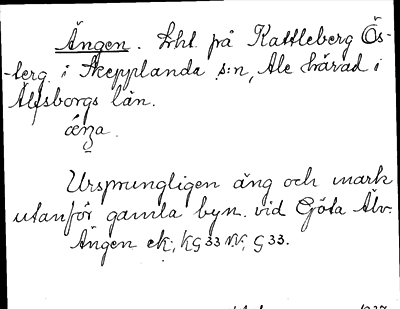 Ängen. Lht. på Kattleberg Ös-
-terg. i Skepplanda s:n, Ale härad i
Älfsborgs län.
Ursprungligen äng och mark
utanför gamla byn. vid Göta Älv.
Ängen ek; KG 33 NV; G 33.